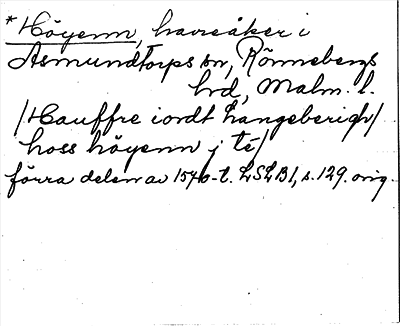 *Höyenn, havreåker i
Asmundtorps sn, Rönnebergs
hrd, Malm. l.
/Hauffre iordt hangeberigh/
hoss höyenn j té/
förra delen av 1540-t. LSLB1, s. 129. orig.